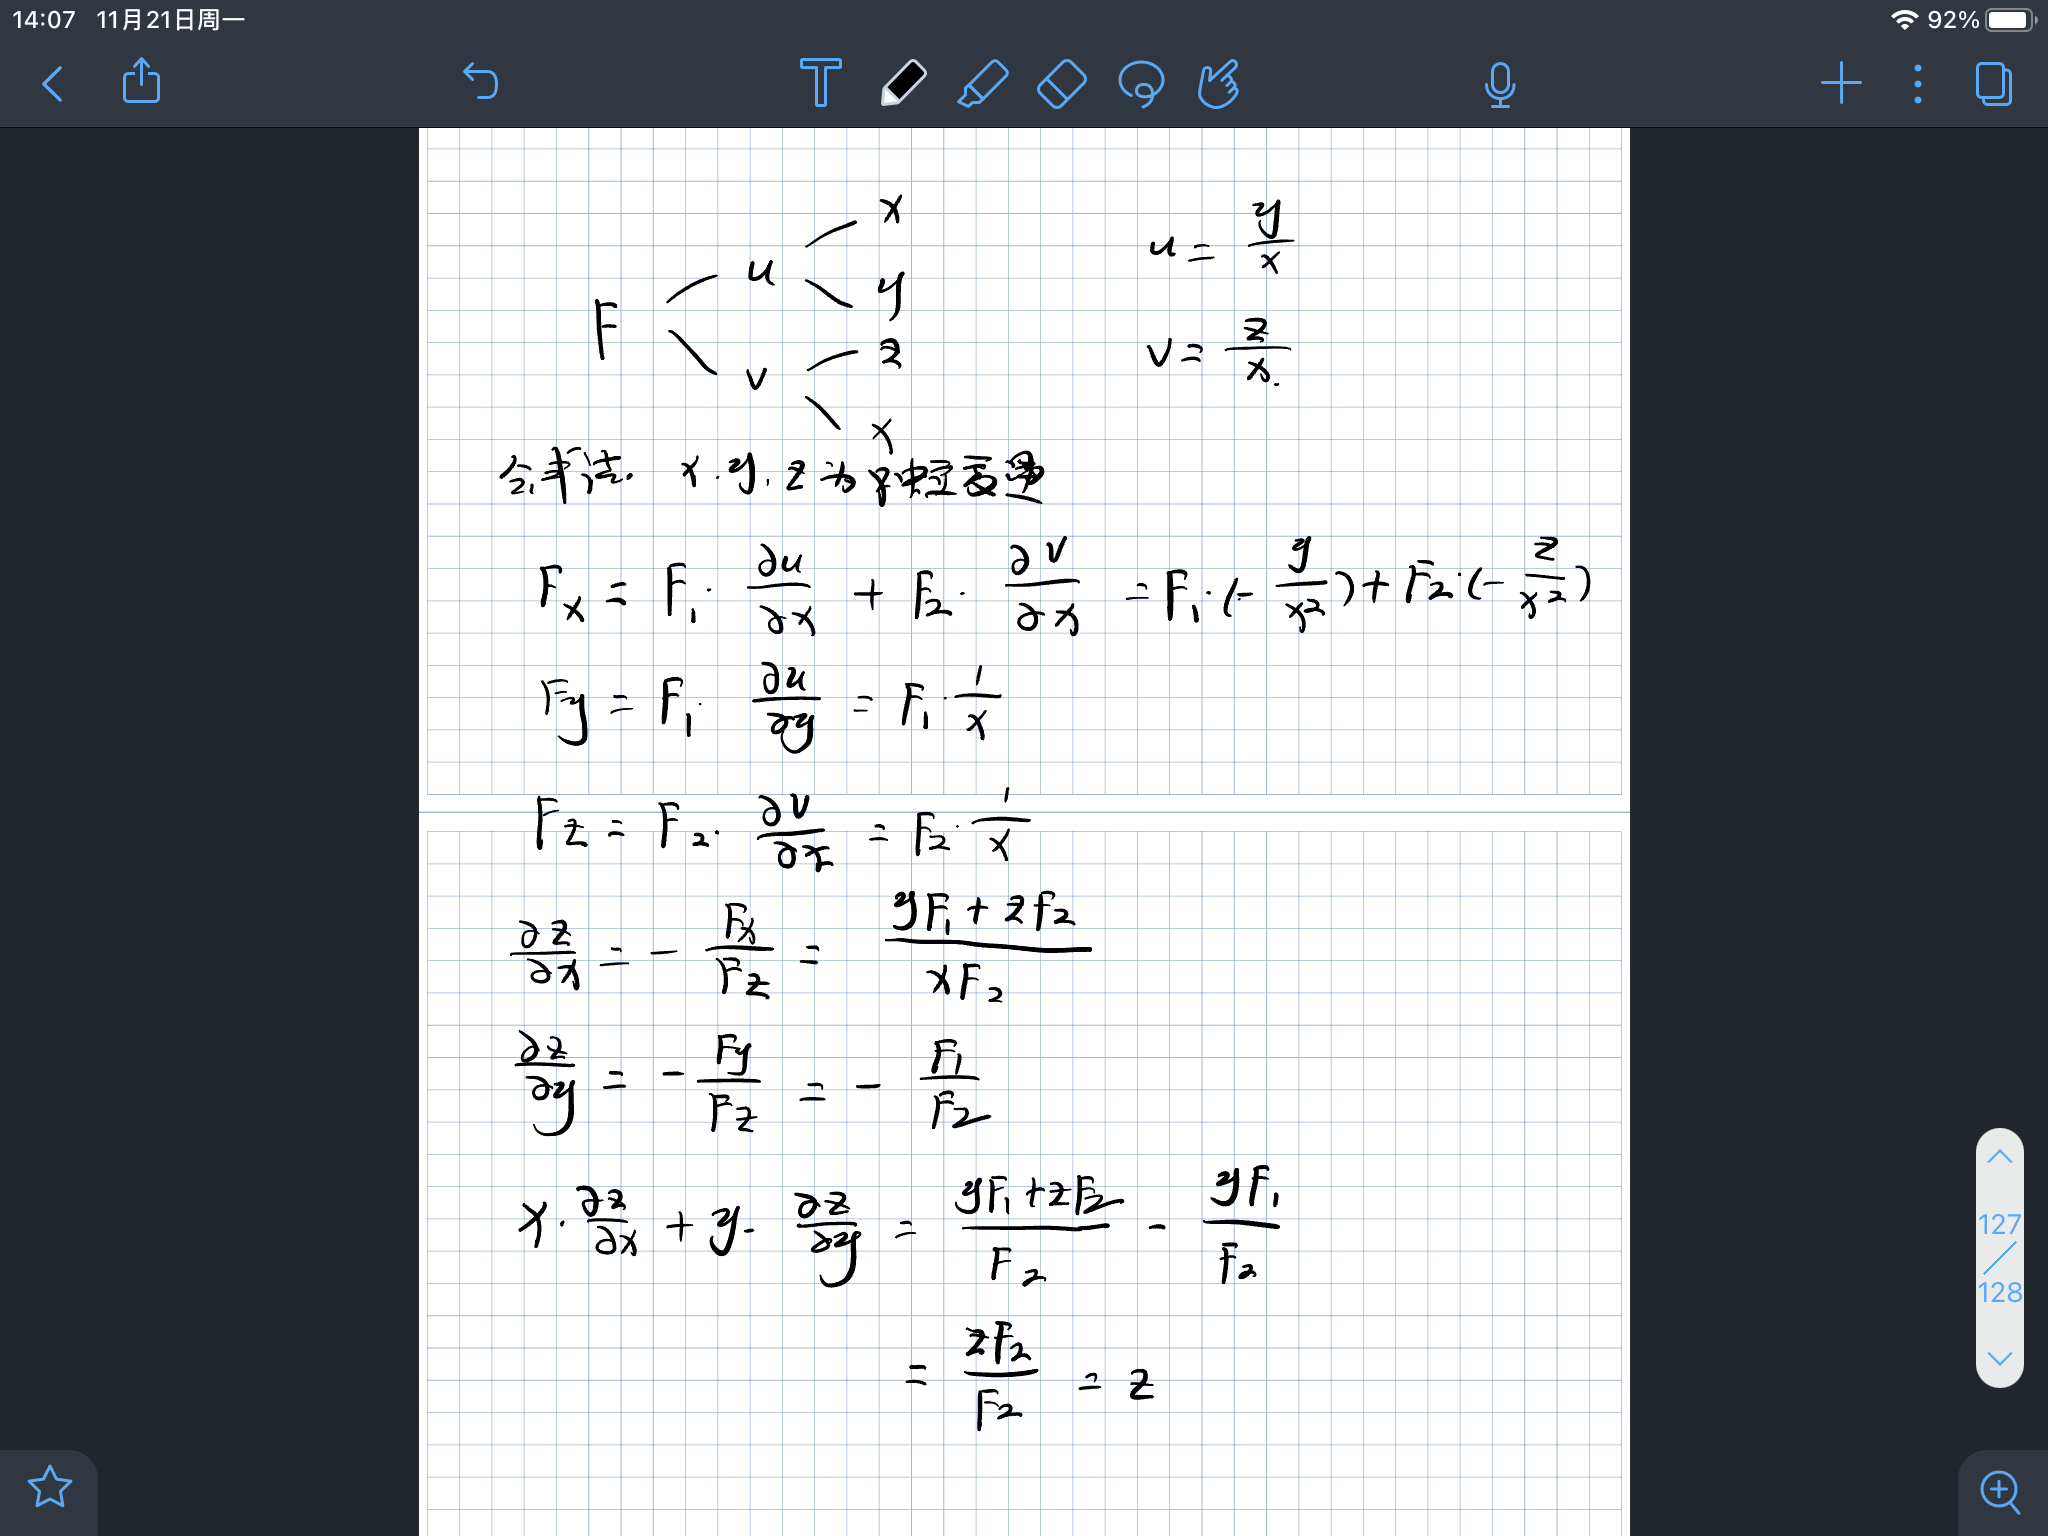 14:07 11月21日周一
92%
x
u
y
F
z
v
x
u = y/x
v = z/x.
公式法. x.y.z为独立变量
Fx = F₁·∂u/∂x + F₂·∂v/∂x = F₁·(-y/x²)+F₂·(-z/x²)
Fy = F₁·∂u/∂y = F₁·1/x
Fz = F₂·∂v/∂z = F₂·1/x
∂z/∂x = - Fx/Fz = (yF₁+zF₂)/(xF₂)
∂z/∂y = - Fy/Fz = - F₁/F₂
x·∂z/∂x + y·∂z/∂y = (yF₁+zF₂)/F₂ - yF₁/F₂
= zF₂/F₂ = z
127
128